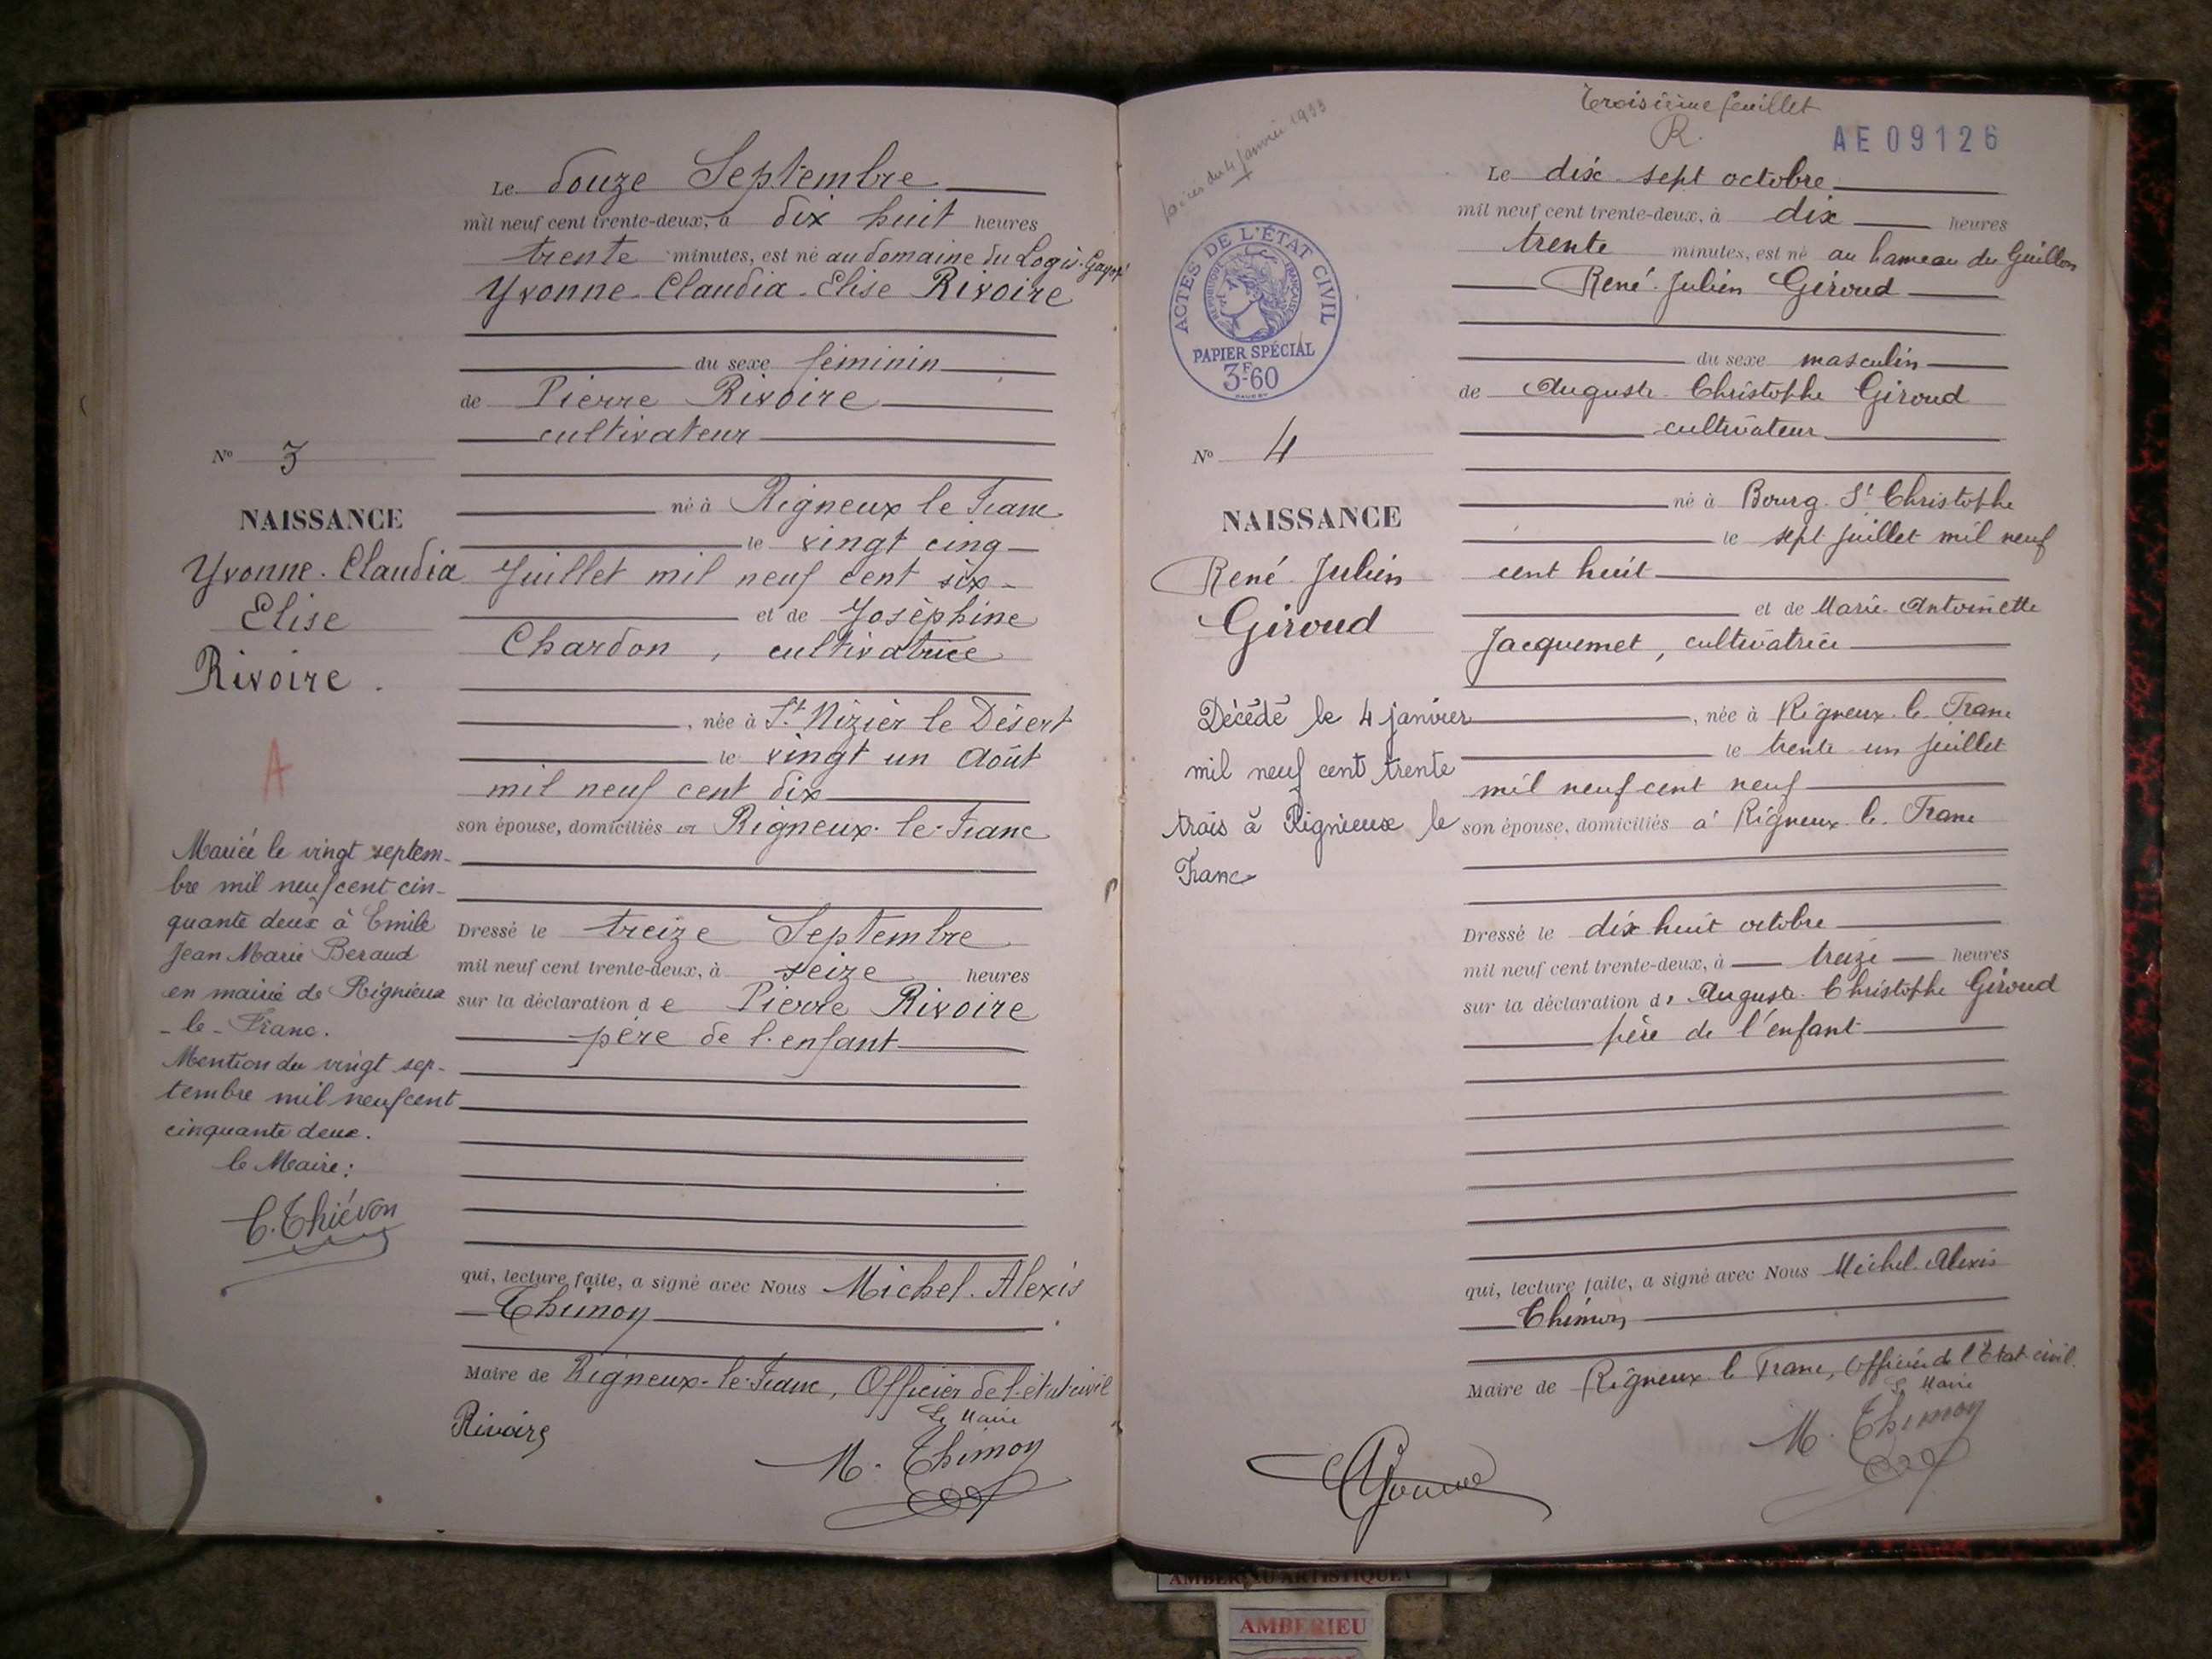 Le douze Septembre
mil neuf cent trente-deux, à dix huit heures
trente minutes, est né au domaine du Logis-Gayot
Yvonne-Claudia-Elise Rivoire
du sexe féminin
de Pierre Rivoire
cultivateur
né à Rigneux le Franc
le vingt cinq
Juillet mil neuf cent six
et de Joséphine
Chardon, cultivatrice
, née à St Nizier le Désert
le vingt un Août
mil neuf cent dix
son épouse, domiciliés à Rigneux-le-Franc
Dressé le treize Septembre
mil neuf cent trente-deux, à seize heures
sur la déclaration de Pierre Rivoire
père de l'enfant
qui, lecture faite, a signé avec Nous Michel-Alexis
Thimon
Maire de Rigneux-le-Franc, Officier de l'état civil
Le Maire
Rivoire
M. Thimon
No 3
NAISSANCE
Yvonne-Claudia
Elise
Rivoire.
A
Mariée le vingt septem-
bre mil neuf cent cin-
quante deux à Emile
Jean Marie Beraud
en mairie de Rignieux
-le-Franc.
Mention du vingt sep-
tembre mil neuf cent
cinquante deux.
le Maire:
C. Thiévon
Troisième feuillet
R.
AE09126
décès du 4 janvier 1933
ACTES DE L'ÉTAT CIVIL
RÉPUBLIQUE FRANÇAISE
PAPIER SPÉCIAL
3F60
No 4
NAISSANCE
René-Julien
Giroud
Décédé le 4 janvier
mil neuf cent trente
trois à Rignieux le
Franc
Le dix-sept octobre
mil neuf cent trente-deux, à dix heures
trente minutes, est né au hameau du Guillon
René-Julien Giroud
du sexe masculin
de Auguste-Christophe Giroud
cultivateur
né à Bourg-St Christophe
le sept juillet mil neuf
cent huit
et de Marie-Antoinette
Jacquemet, cultivatrice
, née à Rigneux-le-Franc
le trente-un juillet
mil neuf cent neuf
son épouse, domiciliés à Rigneux-le-Franc
Dressé le dix huit octobre
mil neuf cent trente-deux, à treize heures
sur la déclaration de Auguste-Christophe Giroud
père de l'enfant
qui, lecture faite, a signé avec Nous Michel-Alexis
Thimon
Maire de Rigneux le Franc, Officier de l'Etat-civil.
Le Maire
M. Thimon
AMBERIEU ARTISTIQUE
AMBERIEU